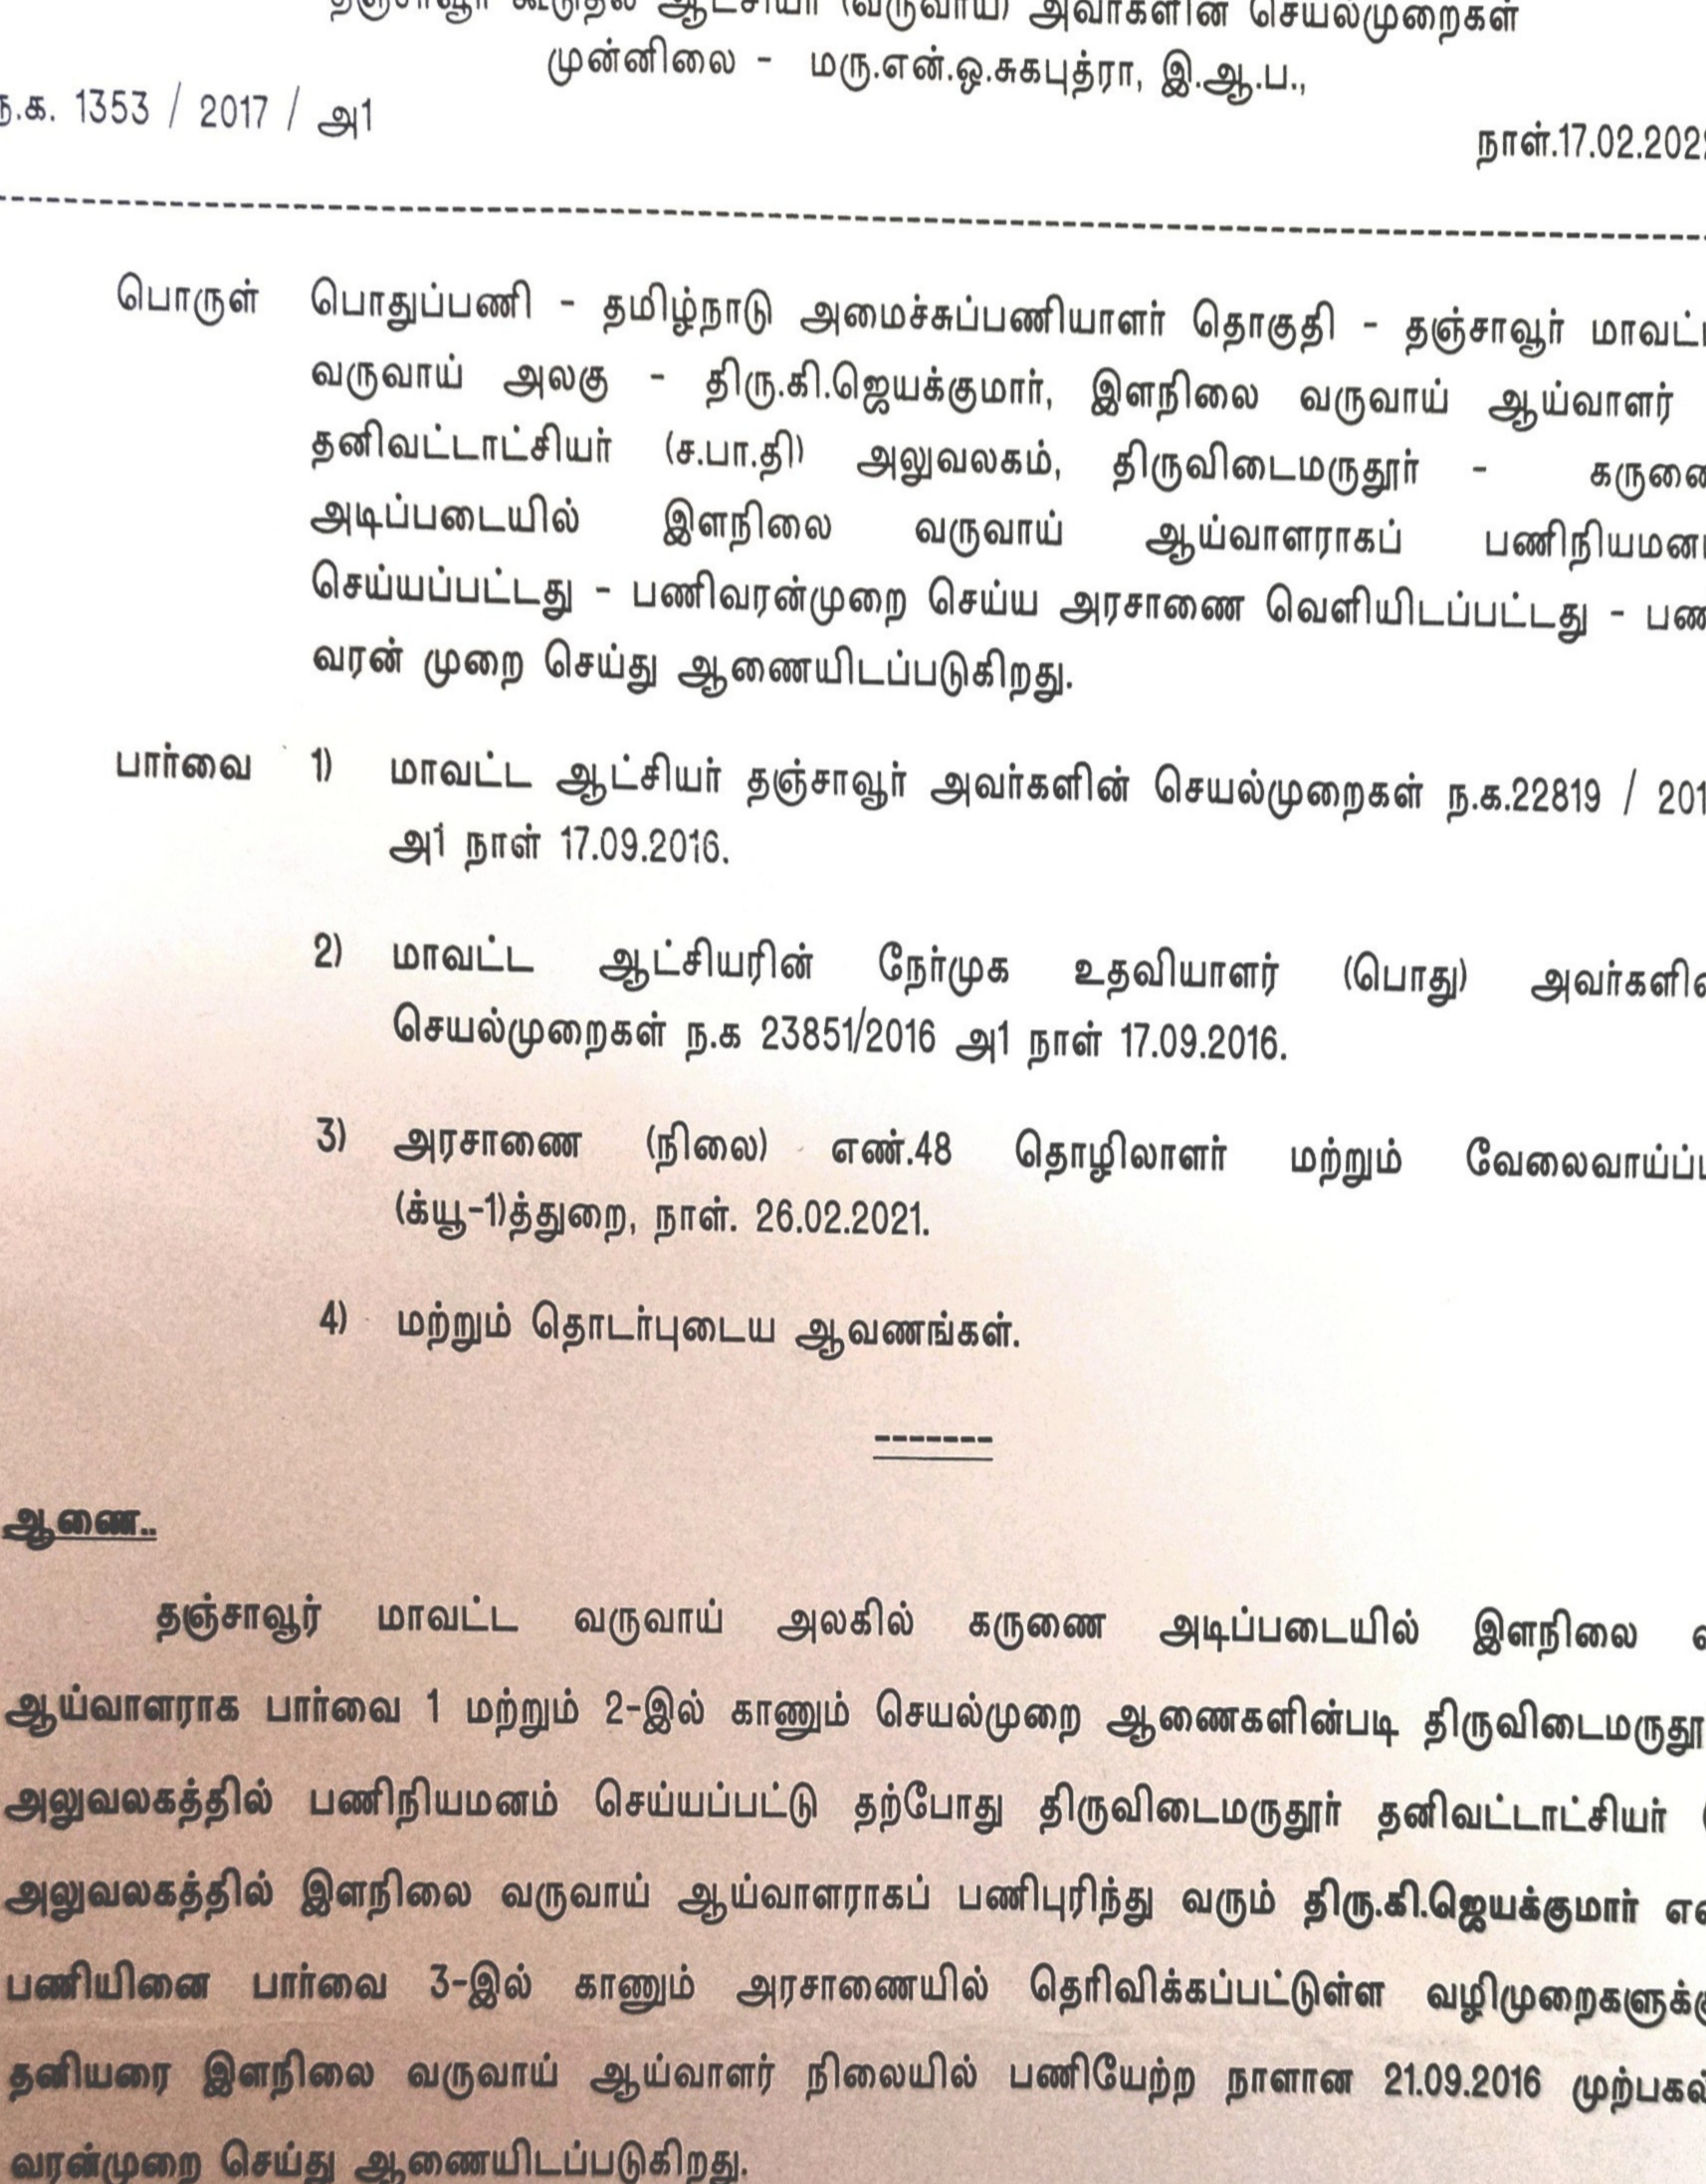 தஞ்சாவூர் கூடுதல் ஆட்சியர் (வருவாய்) அவர்களின் செயல்முறைகள்
முன்னிலை - மரு.என்.ஒ.சுகபுத்ரா, இ.ஆ.ப.,
ந.க. 1353 / 2017 / அ1
நாள்.17.02.202
பொருள் பொதுப்பணி - தமிழ்நாடு அமைச்சுப்பணியாளர் தொகுதி - தஞ்சாவூர் மாவட்
வருவாய் அலகு - திரு.கி.ஜெயக்குமார், இளநிலை வருவாய் ஆய்வாளர்
தனிவட்டாட்சியர் (ச.பா.தி) அலுவலகம், திருவிடைமருதூர் - கருணை
அடிப்படையில் இளநிலை வருவாய் ஆய்வாளராகப் பணிநியமன
செய்யப்பட்டது - பணிவரன்முறை செய்ய அரசாணை வெளியிடப்பட்டது - பண
வரன் முறை செய்து ஆணையிடப்படுகிறது.
பார்வை 1) மாவட்ட ஆட்சியர் தஞ்சாவூர் அவர்களின் செயல்முறைகள் ந.க.22819 / 201
அ1 நாள் 17.09.2016.
2) மாவட்ட ஆட்சியரின் நேர்முக உதவியாளர் (பொது) அவர்களின்
செயல்முறைகள் ந.க 23851/2016 அ1 நாள் 17.09.2016.
3) அரசாணை (நிலை) எண்.48 தொழிலாளர் மற்றும் வேலைவாய்ப்
(க்யூ-1)த்துறை, நாள். 26.02.2021.
4) மற்றும் தொடர்புடைய ஆவணங்கள்.
-------
ஆணை..
தஞ்சாவூர் மாவட்ட வருவாய் அலகில் கருணை அடிப்படையில் இளநிலை
ஆய்வாளராக பார்வை 1 மற்றும் 2-இல் காணும் செயல்முறை ஆணைகளின்படி திருவிடைமருதூ
அலுவலகத்தில் பணிநியமனம் செய்யப்பட்டு தற்போது திருவிடைமருதூர் தனிவட்டாட்சியர் (
அலுவலகத்தில் இளநிலை வருவாய் ஆய்வாளராகப் பணிபுரிந்து வரும் திரு.கி.ஜெயக்குமார் என
பணியினை பார்வை 3-இல் காணும் அரசாணையில் தெரிவிக்கப்பட்டுள்ள வழிமுறைகளுக்கு
தனியரை இளநிலை வருவாய் ஆய்வாளர் நிலையில் பணியேற்ற நாளான 21.09.2016 முற்பகல்
வரன்முறை செய்து ஆணையிடப்படுகிறது.